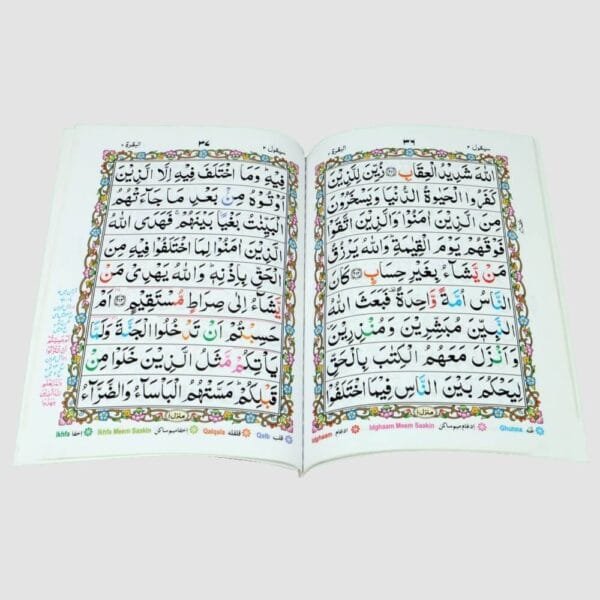 سیقول ۲
۳۶
البقرة ۲
اللهَ شَدِيْدُ الْعِقَابِ ۝ زُيِّنَ لِلَّذِيْنَ
كَفَرُوا الْحَيٰوةُ الدُّنْيَا وَيَسْخَرُوْنَ
مِنَ الَّذِيْنَ اٰمَنُوْا وَالَّذِيْنَ اتَّقَوْا
فَوْقَهُمْ يَوْمَ الْقِيٰمَةِ وَاللهُ يَرْزُقُ
مَنْ يَّشَآءُ بِغَيْرِ حِسَابٍ ۝ كَانَ
النَّاسُ اُمَّةً وَّاحِدَةً فَبَعَثَ اللهُ
النَّبِيّٖنَ مُبَشِّرِيْنَ وَمُنْذِرِيْنَ
وَاَنْزَلَ مَعَهُمُ الْكِتٰبَ بِالْحَقِّ
لِيَحْكُمَ بَيْنَ النَّاسِ فِيْمَا اخْتَلَفُوْا
منزل ۱
Idghaam ادغام Idghaam Meem Saakin ادغام میم ساکن Ghunna غنہ
سیقول ۲
۳۷
البقرة ۲
فِيْهِ وَمَا اخْتَلَفَ فِيْهِ اِلَّا الَّذِيْنَ
اُوْتُوْهُ مِنْۢ بَعْدِ مَا جَآءَتْهُمُ
الْبَيِّنٰتُ بَغْيًۢا بَيْنَهُمْ فَهَدَى اللهُ
الَّذِيْنَ اٰمَنُوْا لِمَا اخْتَلَفُوْا فِيْهِ مِنَ
الْحَقِّ بِاِذْنِهٖ وَاللهُ يَهْدِيْ مَنْ
يَّشَآءُ اِلٰى صِرَاطٍ مُّسْتَقِيْمٍ ۝ اَمْ
حَسِبْتُمْ اَنْ تَدْخُلُوا الْجَنَّةَ وَلَمَّا
يَاْتِكُمْ مَّثَلُ الَّذِيْنَ خَلَوْا مِنْ
قَبْلِكُمْ مَسَّتْهُمُ الْبَاْسَآءُ وَالضَّرَّآءُ
منزل ۱
Ikhfa اخفا Ikhfa Meem Saakin اخفا میم ساکن Qalqala قلقلہ Qalb قلب